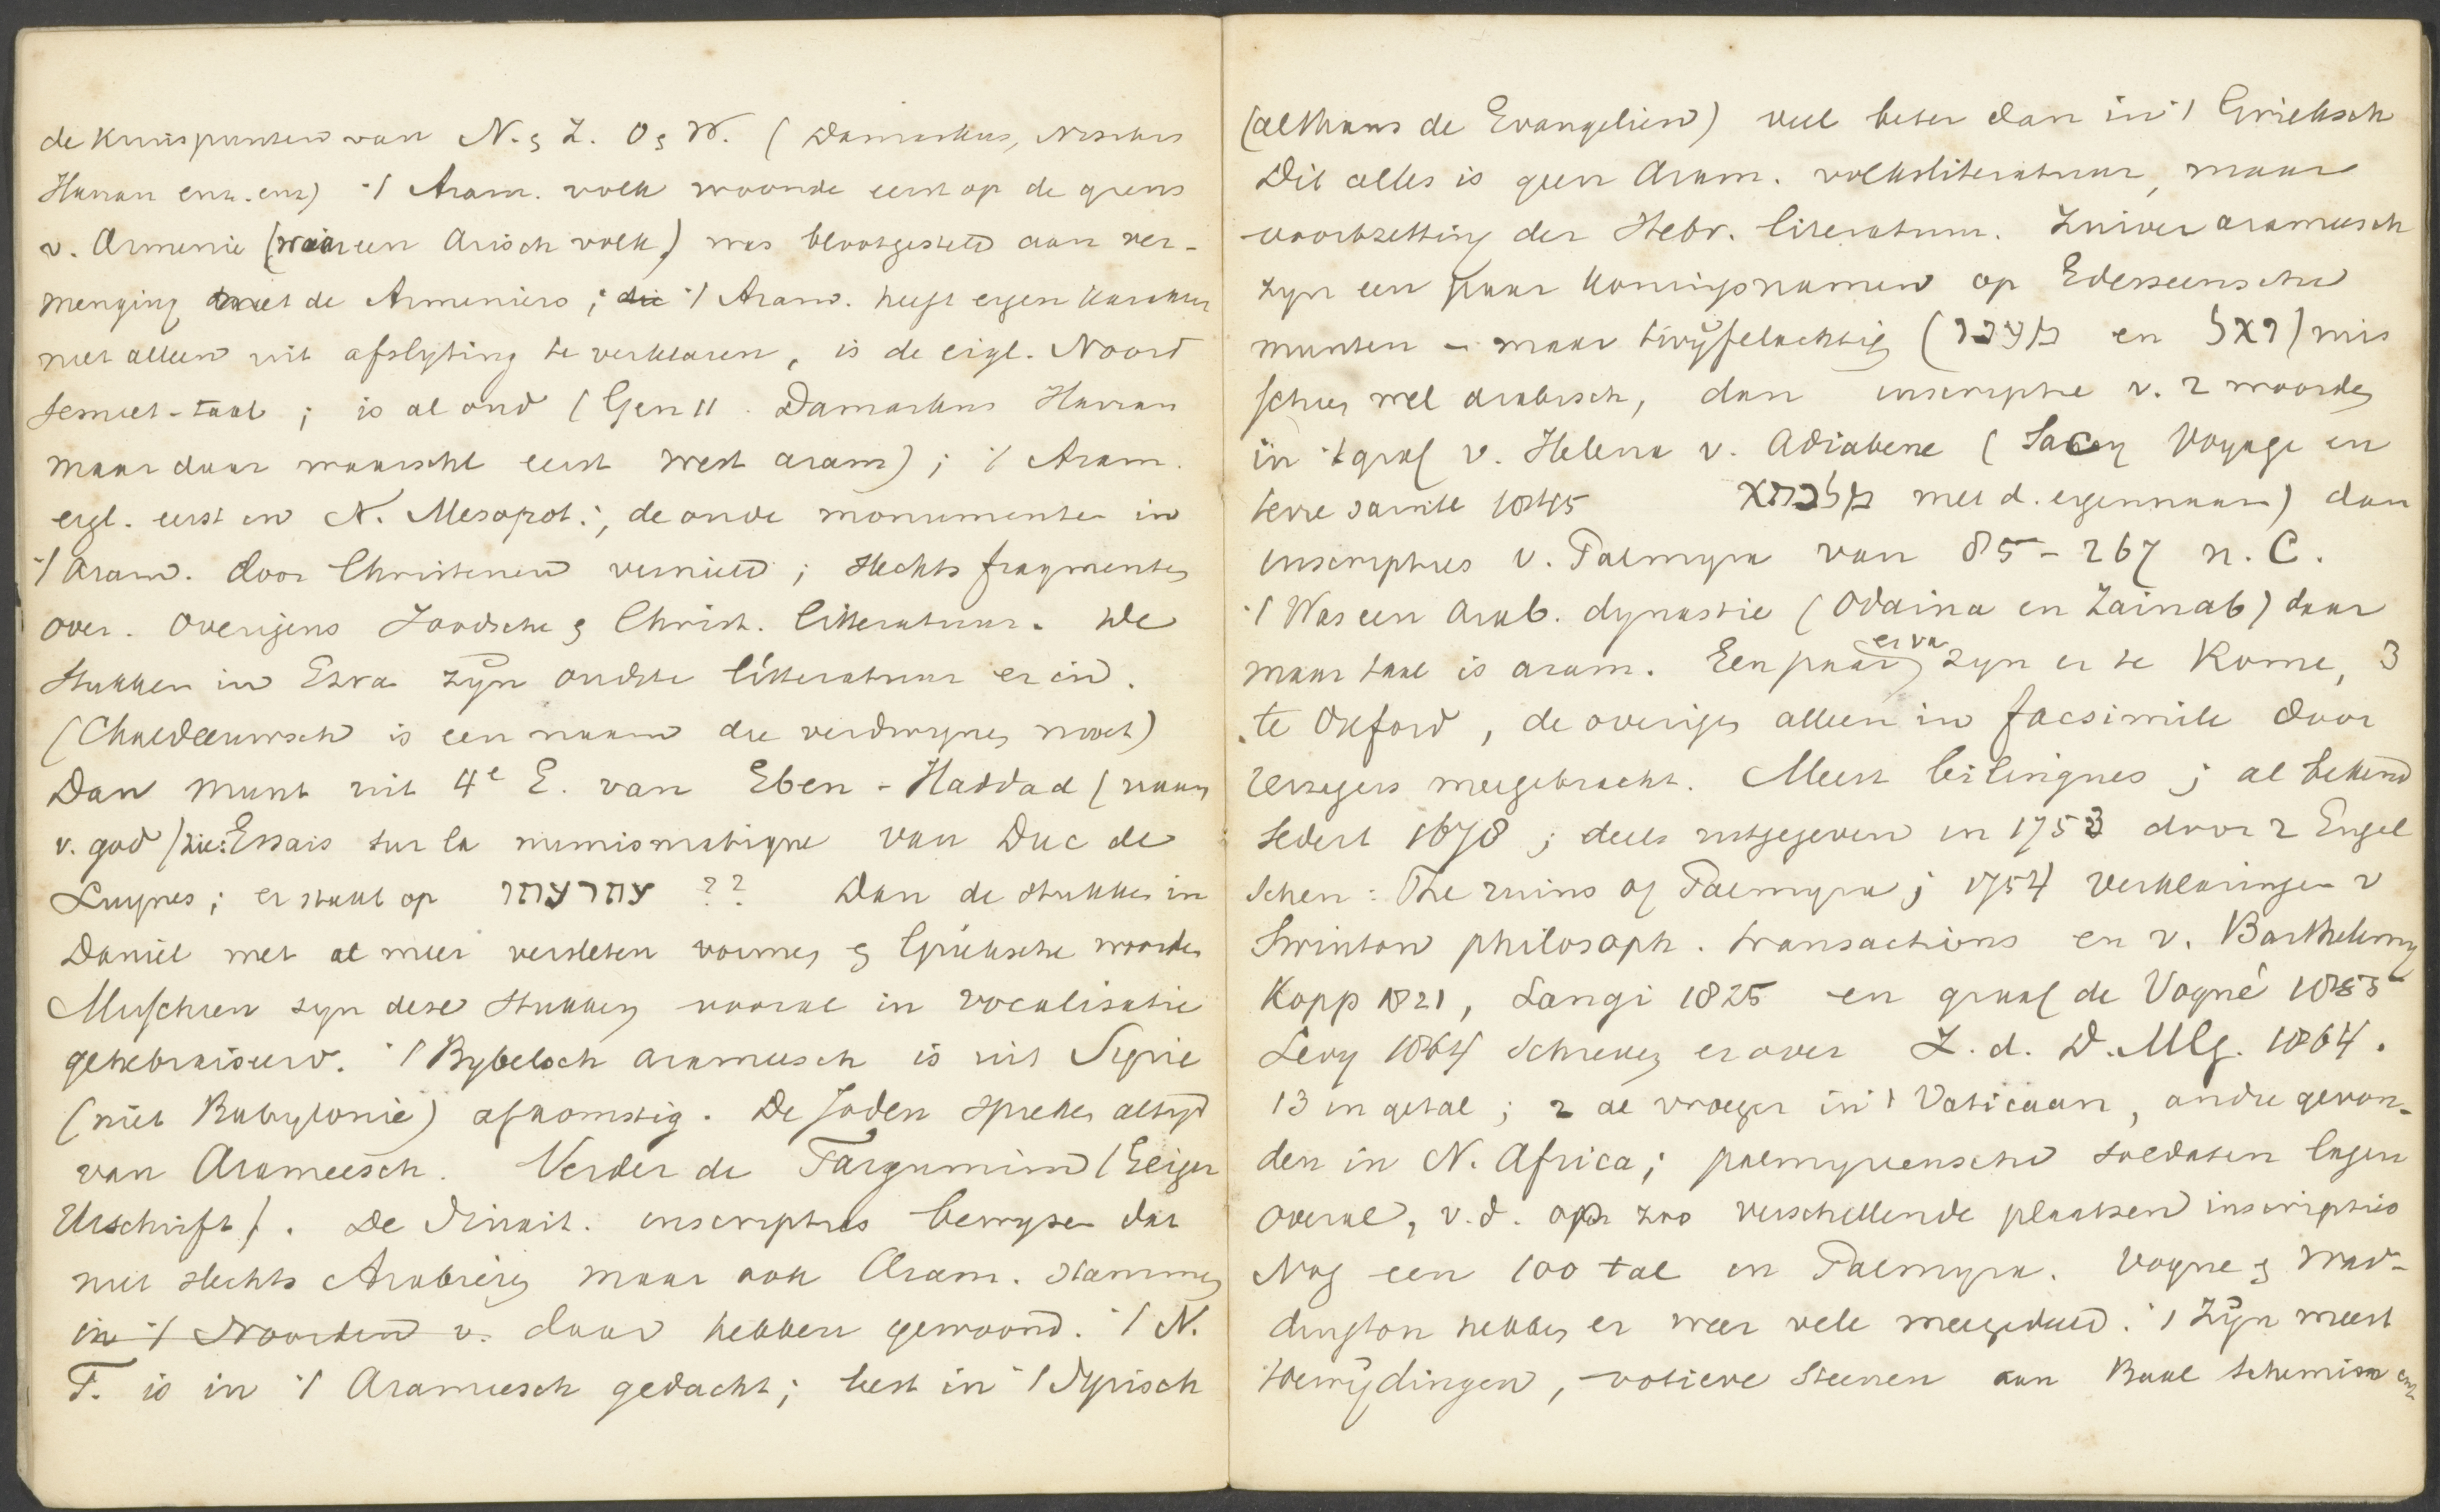 de Kruispunten van N. & Z. O & W. (Damaskus, Nisibis
Harran enz. enz) 't Aram. volk woonde eerst op de grens
v. Armenie (waar een Arisch volk) was blootgesteld aan ver-
menging met de Armeniers; die 't Aram. heeft eigen karakter
niet alleen uit afslyting te verklaren, is de eigl. Noord
Semiet-taal; is al oud (Gen 11. Damaskus Harran
maar daar waarschl eerst west aram); 't Aram.
eigl. eerst in N. Mesopot.; de oude monumenten in
't Aram. door Christenen vernield; slechts fragmenten
over. Overigens Joodsche & Christ. litteratuur. De
stukken in Esra zyn oudste litteratuur er in.
(Chaldeeuwsch is een naam die verdwynen moet)
Dan munt uit 4e E. van Eben-Haddad (naam
v. god) zie: Essais sur la numismatique van Duc de
Luynes; er staat op עתרעתה ?? Dan de stukken in
Daniel met al meer versleten vormen & Grieksche woorden
Misschien zyn deze stukken vooral in vocalisatie
gehebraiseerd. 't Bybelsch arameesch is uit Syrie
(niet Babylonie) afkomstig. De Joden spreken altyd
van Arameesch. Verder de Targumim (Geiger
Urschrift). De Sinait. inscripties bewyzen dat
niet slechts Arabieren maar ook Aram. stammen
in 't Noorden v. daar hebben gewoond. 't N.
T. is in 't Arameesch gedacht; leest in 't Syrisch
(althans de Evangelien) veel beter dan in 't Grieksch
Dit alles is geen Aram. volksliteratuur, maar
voortzetting der Hebr. literatuur. Zuiver arameesch
zyn een paar koningsnamen op Edesseensche
munten – maar twyfelachtig (מענו en ואל) mis
schien wel arabisch, dan inscriptie v. 2 woorden
in 't graf v. Helena v. Adiabene (Sacey Voyage en
terre sainte 1845 מלכתא met d. eigennaam) dan
inscripties v. Palmyra van 85 - 267 n. C.
't Was een Arab. dynastie (Odaina en Zainab) daar
maar taal is aram. Een paar er van zyn er te Rome, 3
te Oxford, de overigen alleen in facsimile door
reizigers meegebracht. Meest bilingues; al bekend
sedert 1678; deels uitgegeven in 1753 door 2 Engel
schen: The ruins of Palmyra; 1754 verklaringen v
Swinton philosoph. transactions en v. Barthelemy
Kopp 1821, Langi 1825 en graaf de Vogué 1855
Levy 1864 schreven er over Z. d. D. M. G. 1864.
13 in getal; 2 al vroeger in 't Vaticaan, andre gevon-
den in N. Africa; palmyreensche soldaten lagen
overal, v.d. op zoo verschillende plaatsen inscripties
Nog een 100 tal in Palmyra. Vogue & Wad-
dington hebben er weer vele meegedeeld. 't Zyn meest
toewydingen, votieve steenen aan Baal Schemisn enz